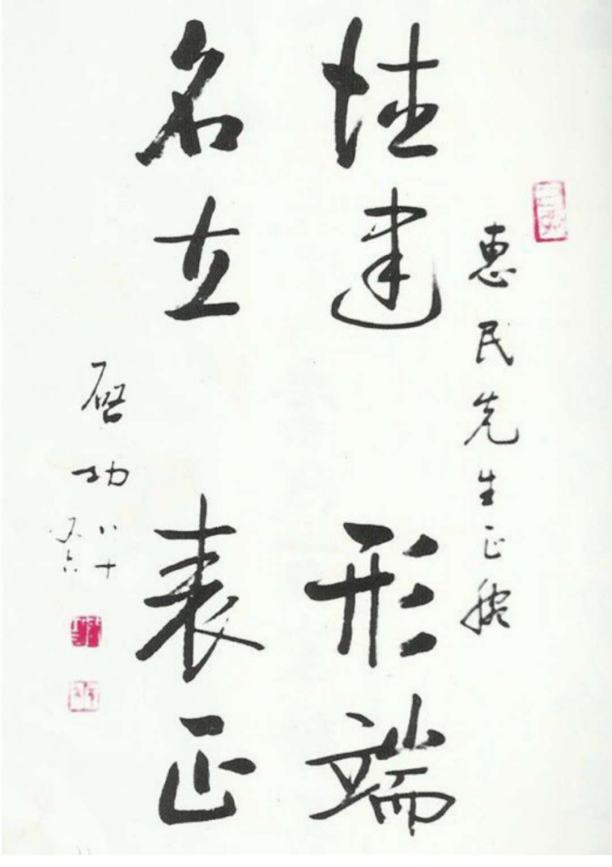 惠民先生正腕
德建 形端
名立 表正
启功 八十
又六